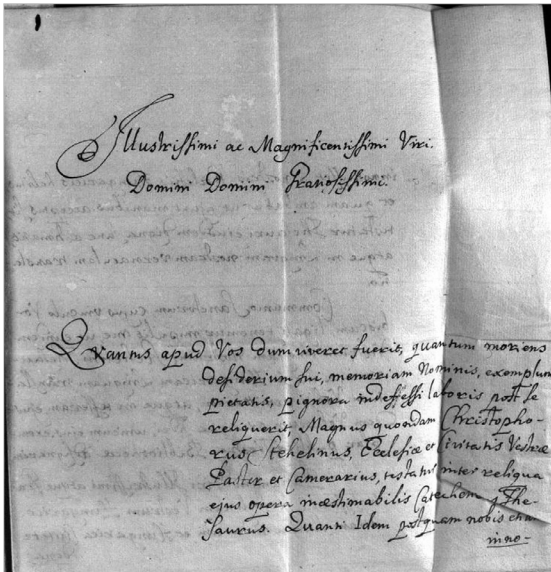 Illustrissimi ac Magnificentissimi Viri.
Domini Domini Gratiosissimi.
Quantus apud Vos dum viveret fuerit, quantum moriens
desiderium sui, memoriam Nominis, exemplum
pietatis, pignora indefessi laboris post se
reliquerit, Magnus quondam Christopho-
rus Stehelinus, Ecclesiæ et Civitatis Vestræ
Pastor et Camerarius, testatur inter reliqua
ejus opera inæstimabilis Catechom The-
saurus. Quanti Idem postquam nobis etia
inno-